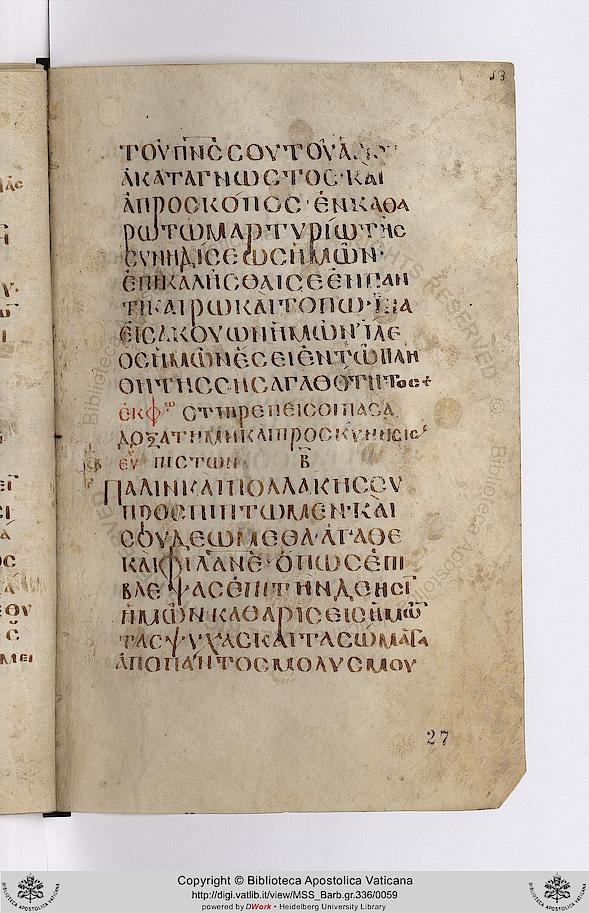 13
ΤΟΥ ΠΝ̅Σ ΣΟΥ ΤΟΥ
ἈΚΑΤΑΓΝΩΣΤΟΣ· ΚΑΙ
ἈΠΡΟΣΚΌΠΩΣ· ἘΝ ΚΑΘΑ
ΡῶΤΩ ΜΑΡΤΥΡΙΩ ΤΗΣ
ΣΥΝΗΔΙΣΕΩΣ ἩΜῶΝ·
ἘΠΙΚΑΛΗΣΘΑΙ ΣΕ ἘΝ ΠΑΝ
ΤΗ ΚΑΙΡΩ ΚΑΙ ΤΟΠΩ· ἹΝΑ
ΕἸΣΑΚΟΥΩΝ ἩΜῶΝ· ἹΛΕ
ΟΣ ἩΜῶΝ ἘΣΕΙ ἘΝ ΤῶΠΛΗ
ΘΗ ΤΗΣ ΣΗΣ ἈΓΑΘΌΤΗΤΟΣ+
ἘΚΦω ΟΤΗ ΠΡΕΠΕΙ ΣΟΙ ΠΑΣΑ
ΔΟΞΑ ΤΗΜΗ ΚΑΙ ΠΡΟΣΚΥΝΗΣΙΣ
ΕΥ ΠΙΣΤΩΝ Β̅
ΠΑΛΙΝ ΚΑΙ ΠΟΛΛΑΚΗΣ ΣΟΥ
ΠΡΟΣΠΙΠΤΩΜΕΝ· ΚΑΙ
ΣΟΥ ΔΕΩΜΕΘΑ· ἈΓΑΘΕ
ΚΑΙ ΦΙΛΑΝΕ· ὉΠΩΣ ἘΠΙ
ΒΛΕΨΑΣ ἘΠΙ ΤΗΝ ΔΕΗΣΙ̅
ἩΜῶΝ ΚΑΘΑΡΙΣΕΙΣ ἩΜΩ̅
ΤΑΣ ΨΥΧΑΣ ΚΑΙ ΤΑ ΣΩΜΑΤΑ
ἈΠΟ ΠΑΝΤΟΣ ΜΟΛΥΣΜΟΥ
27
Copyright © Biblioteca Apostolica Vaticana
http://digi.vatlib.it/view/MSS_Barb.gr.336/0059
powered by DWork • Heidelberg University Library